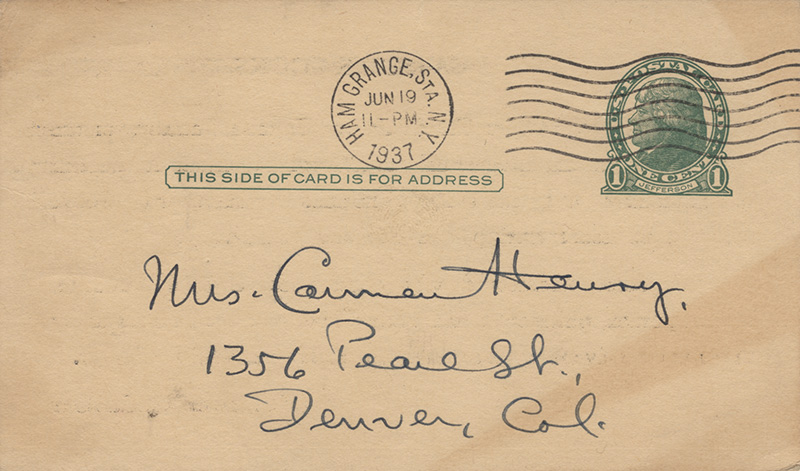 HAM GRANGE, STA. N.Y.
JUN 19
11-PM
1937
U.S. POSTAL CARD
ONE CENT
1 JEFFERSON 1
THIS SIDE OF CARD IS FOR ADDRESS
Mrs. Carmen Henry,
1356 Pearl St.,
Denver, Col.